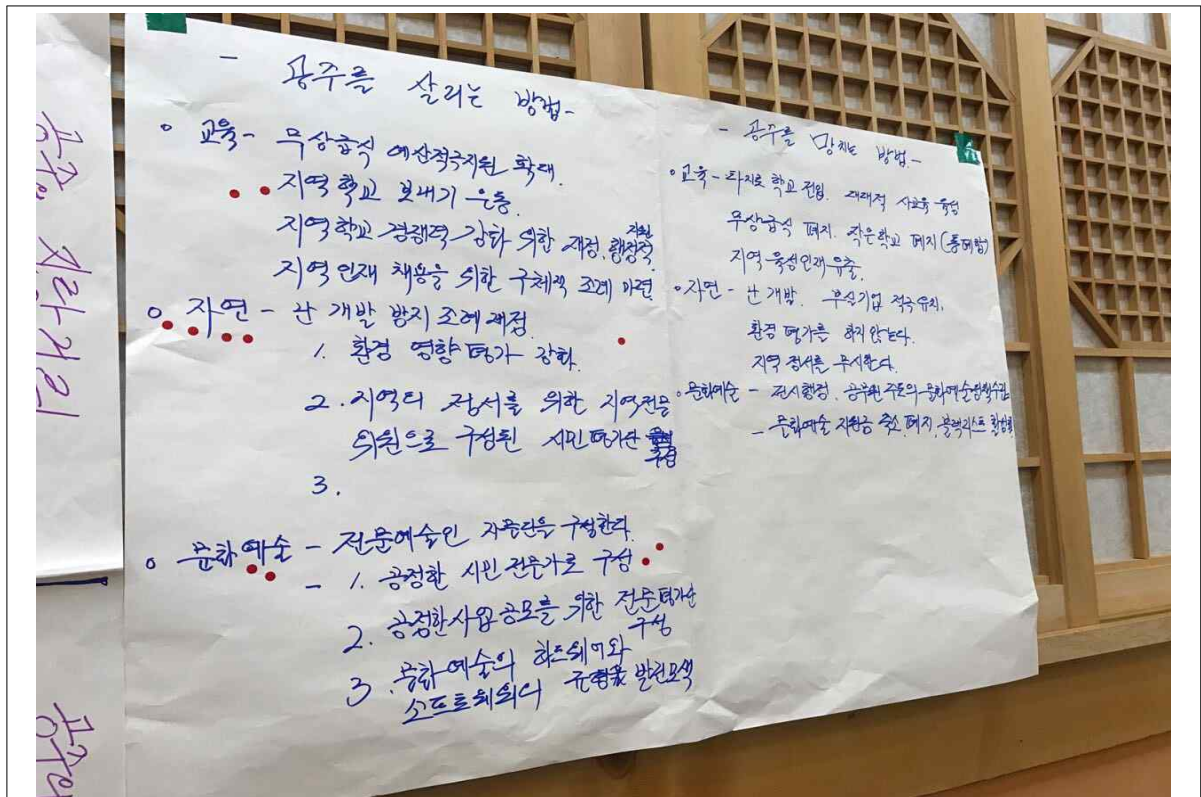 - 공주를 살리는 방법 -
○ 교육 - 무상급식 예산적극지원 확대.
지역학교 보내기 운동.
지역학교 경쟁력 강화 위한 재정, 행정적 지원
지역인재 채용을 위한 구체적 조례 마련
○ 자연 - 난 개발 방지 조예 제정.
1. 환경 영향 평가 강화.
2. 지역의 정서를 위한 지역전문
의원으로 구성된 시민평가단 구성
3.
○ 문화예술 - 전문예술인 자문단을 구성한다.
- 1. 공정한 시민 전문가로 구성
2. 공정한사업공모를 위한 전문평가단
구성
3. 문화예술의 하드웨어와
소프트웨어의 발전모색
- 공주를 망치는 방법 -
○ 교육 - 타지로 학교 전입. 대대적 사교육 육성
무상급식 폐지. 작은학교 폐지(통폐합)
지역육성인재 유출.
○ 자연 - 난 개발. 부실기업 적극 유치.
환경 평가를 하지 않는다.
지역 정서를 무시한다.
○ 문화예술 - 전시행정. 공무원 주도의 문화예술정책수립
- 문화예술 지원금 축소, 폐지, 블랙리스트 활성화